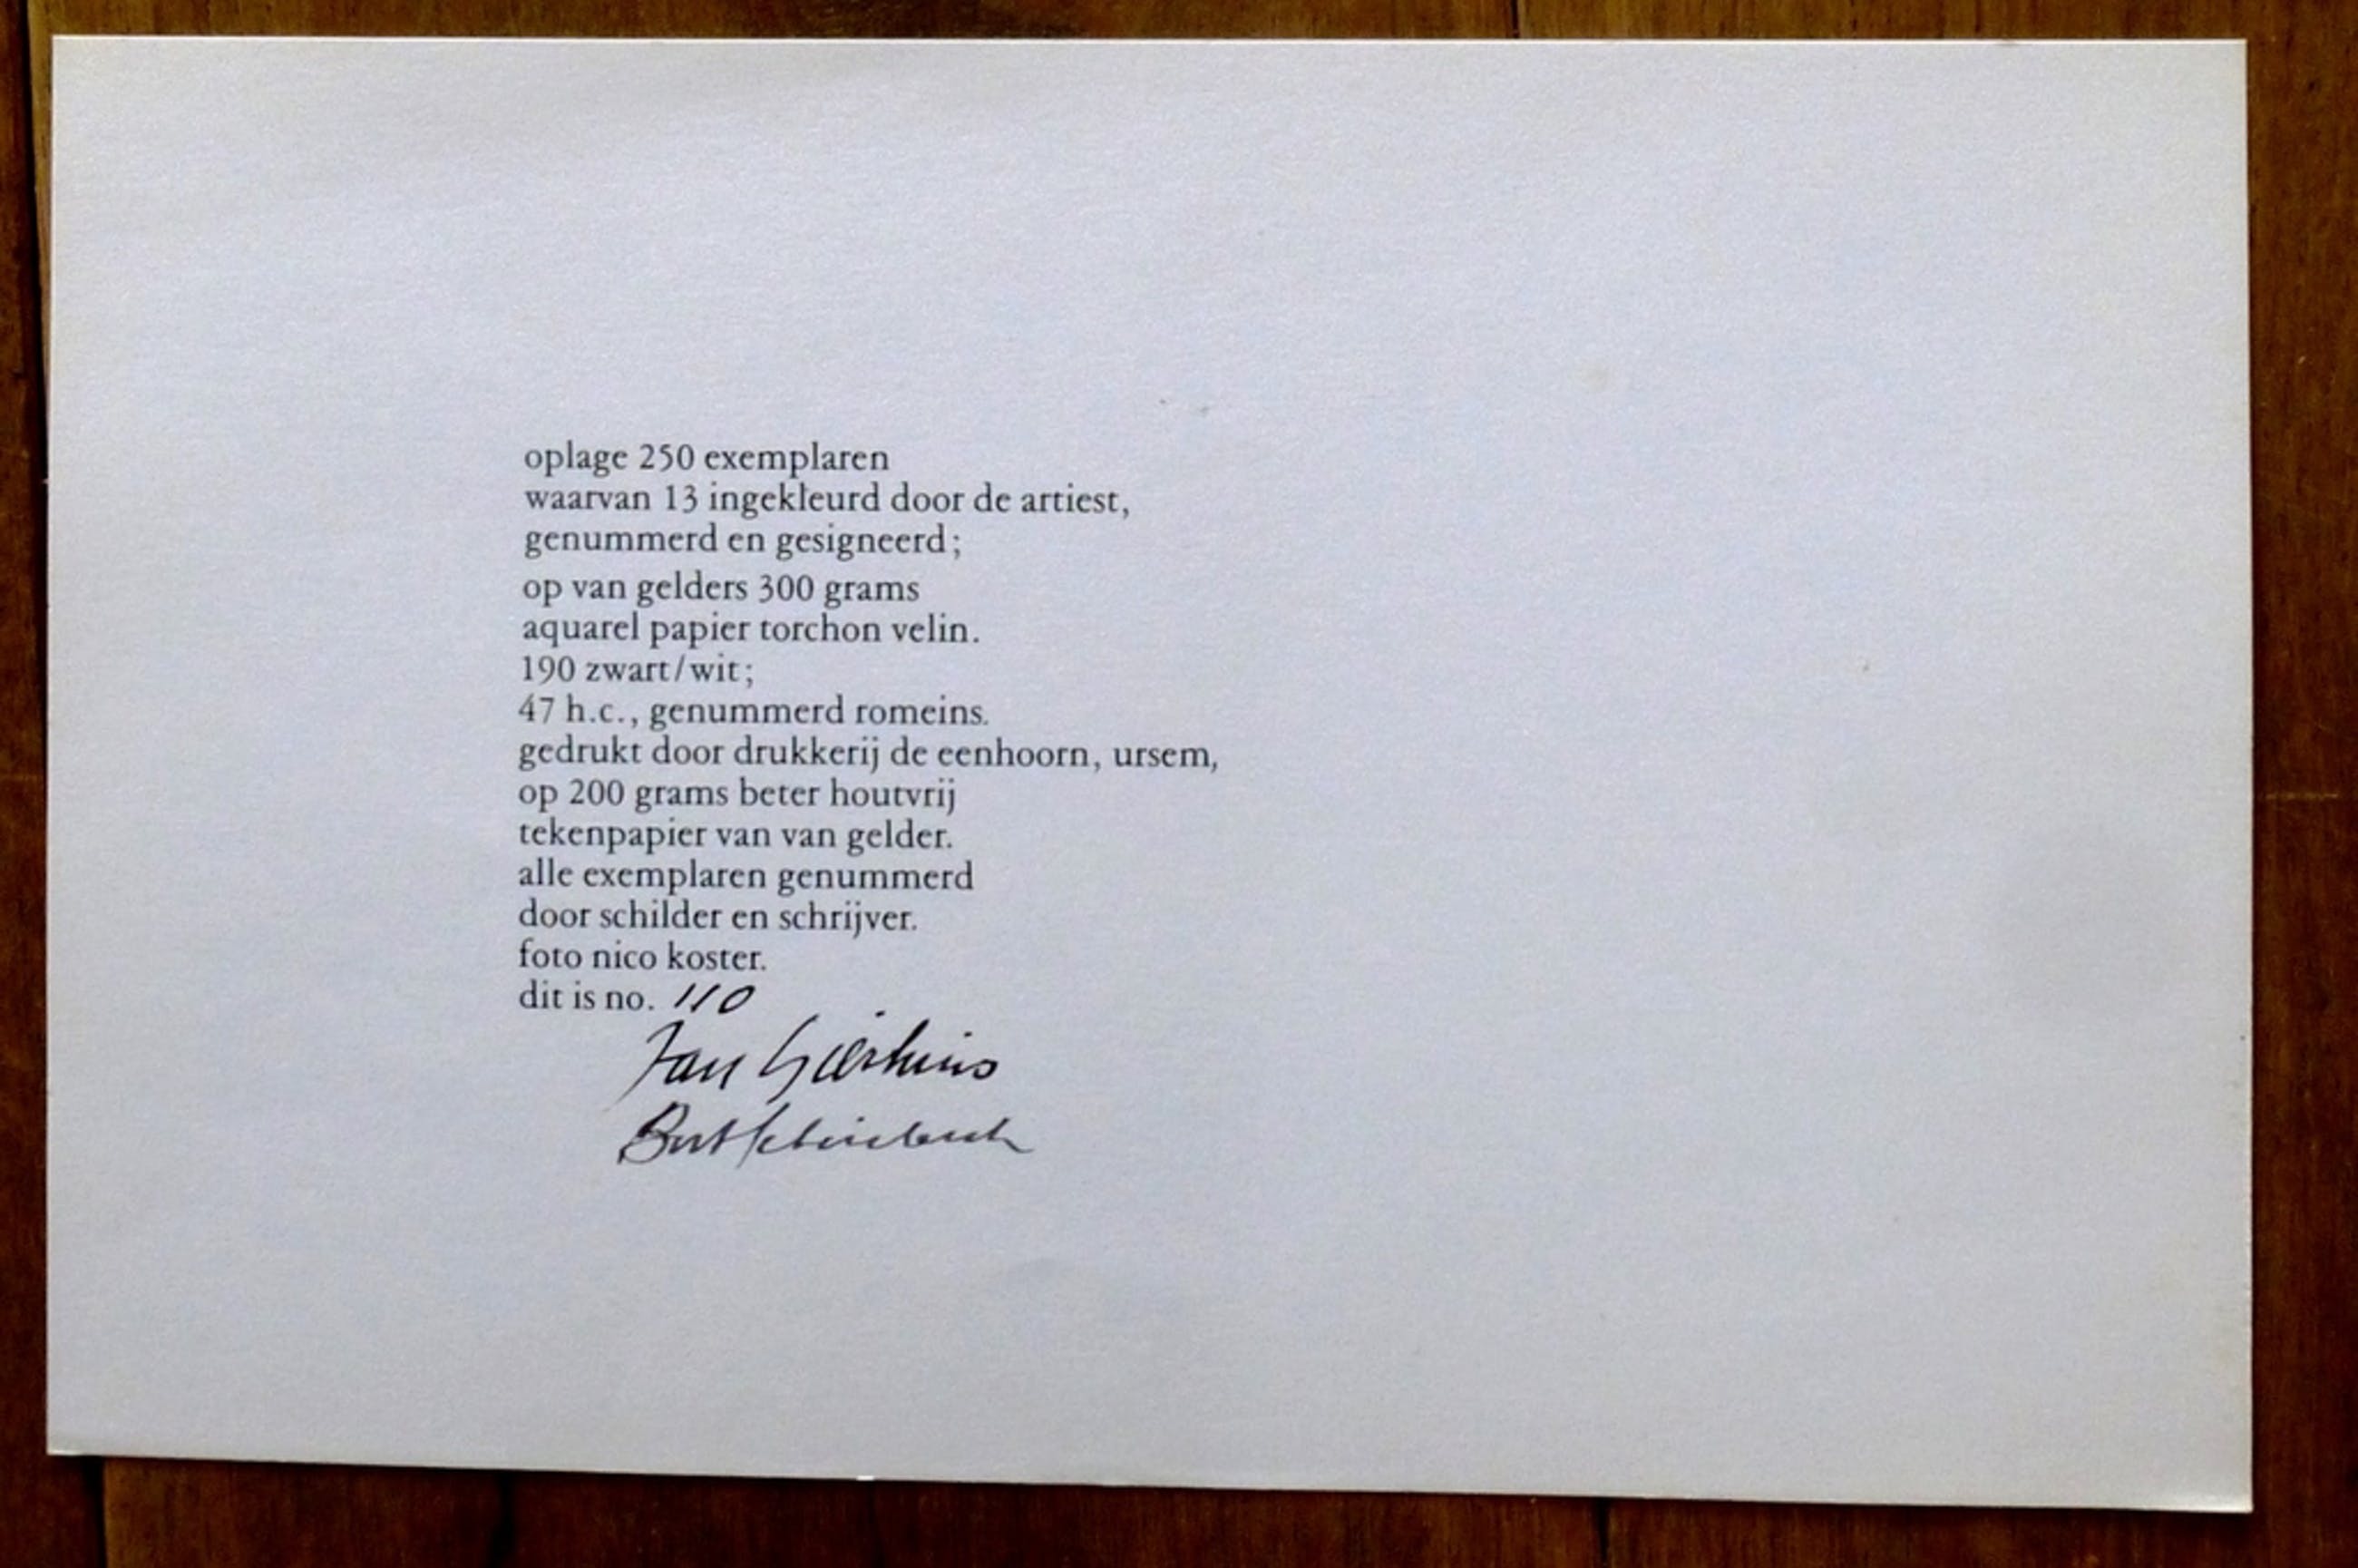 oplage 250 exemplaren
waarvan 13 ingekleurd door de artiest,
genummerd en gesigneerd;
op van gelders 300 grams
aquarel papier torchon velin.
190 zwart/wit;
47 h.c., genummerd romeins.
gedrukt door drukkerij de eenhoorn, ursem,
op 200 grams beter houtvrij
tekenpapier van van gelder.
alle exemplaren genummerd
door schilder en schrijver.
foto nico koster.
dit is no. 110
Jan
Bert